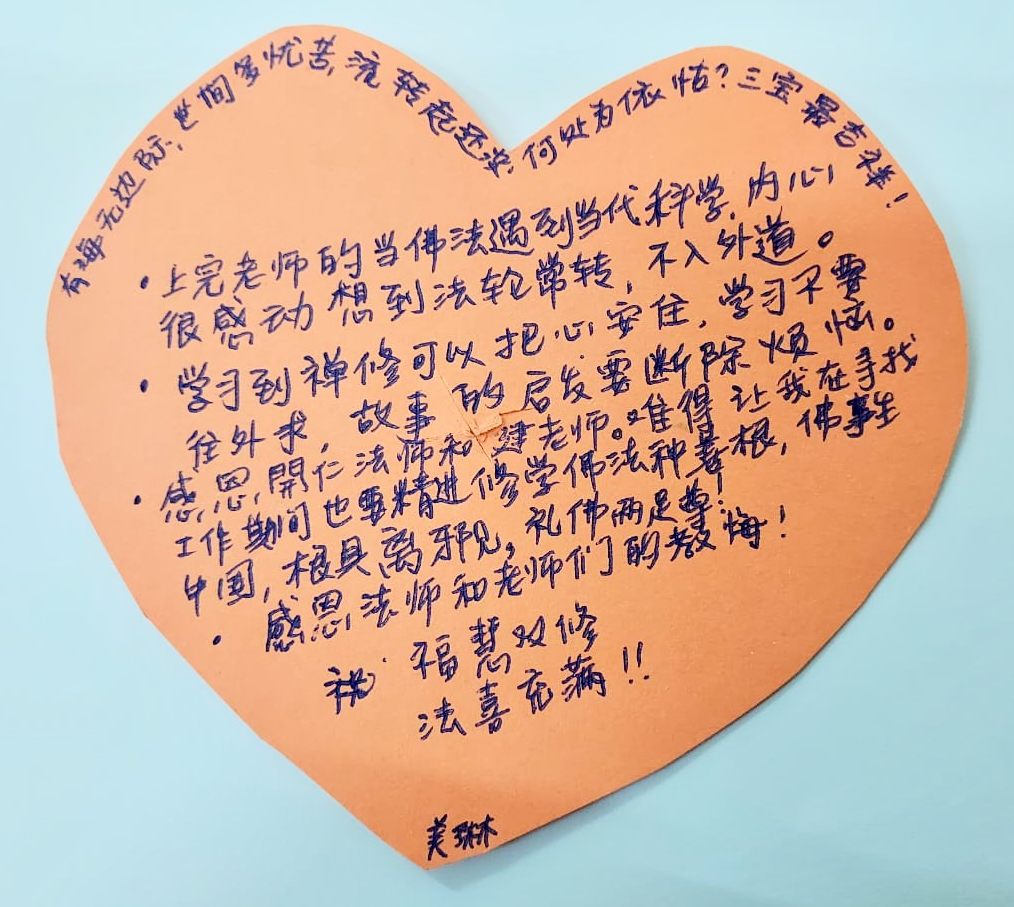 有海无边际,世间多忧苦,流转起还没,何处为依怙?三宝最吉祥!
·上完老师的当佛法遇到当代科学,内心
很感动想到法轮常转,不入外道。
·学习到禅修可以把心安住,学习不要
往外求,故事的启发要断除烦恼。
·感恩開仁法师和建老师。难得让我在寻找
工作期间也要精进修学佛法种善根,佛事生
中国,根具离邪见,礼佛两足尊!
·感恩法师和老师们的教悔!
祝 福慧双修
法喜充满!!
美琳